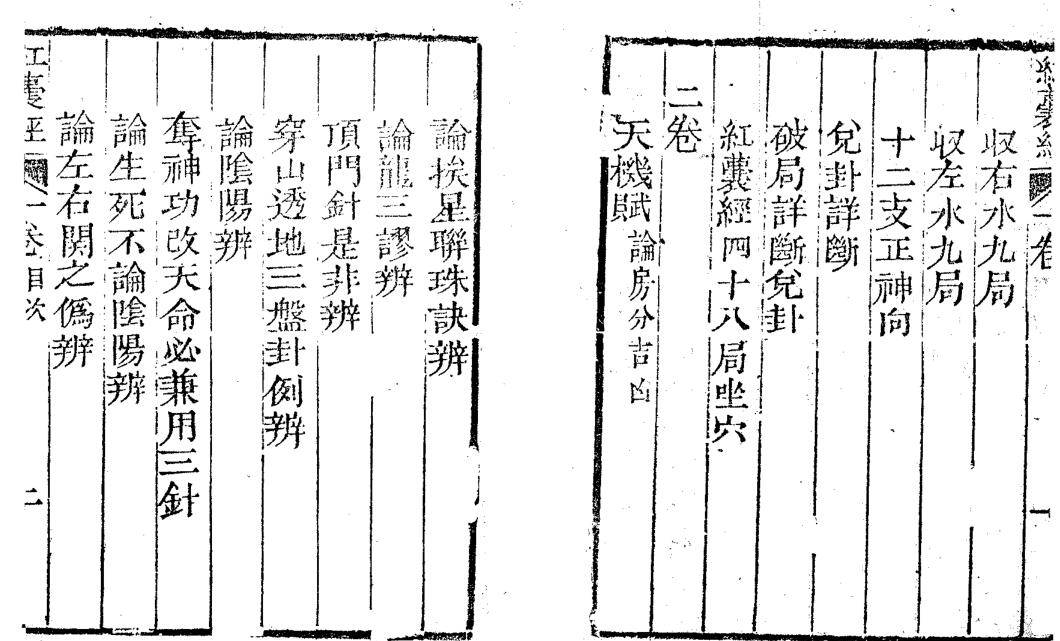 紅囊經 一卷 一
収右水九局
収左水九局
十二支正神向
兌卦詳斷
破局詳斷兌卦
紅囊經四十八局坐穴
二卷
天機賦 論房分吉凶
論挨星聯珠訣辨
論龍三謬辨
頂門針是非辨
穿山透地三盤卦例辨
論陰陽辨
奪神功改天命必兼用三針
論生死不論陰陽辨
論左右関之僞辨
紅囊經 一卷目次 二